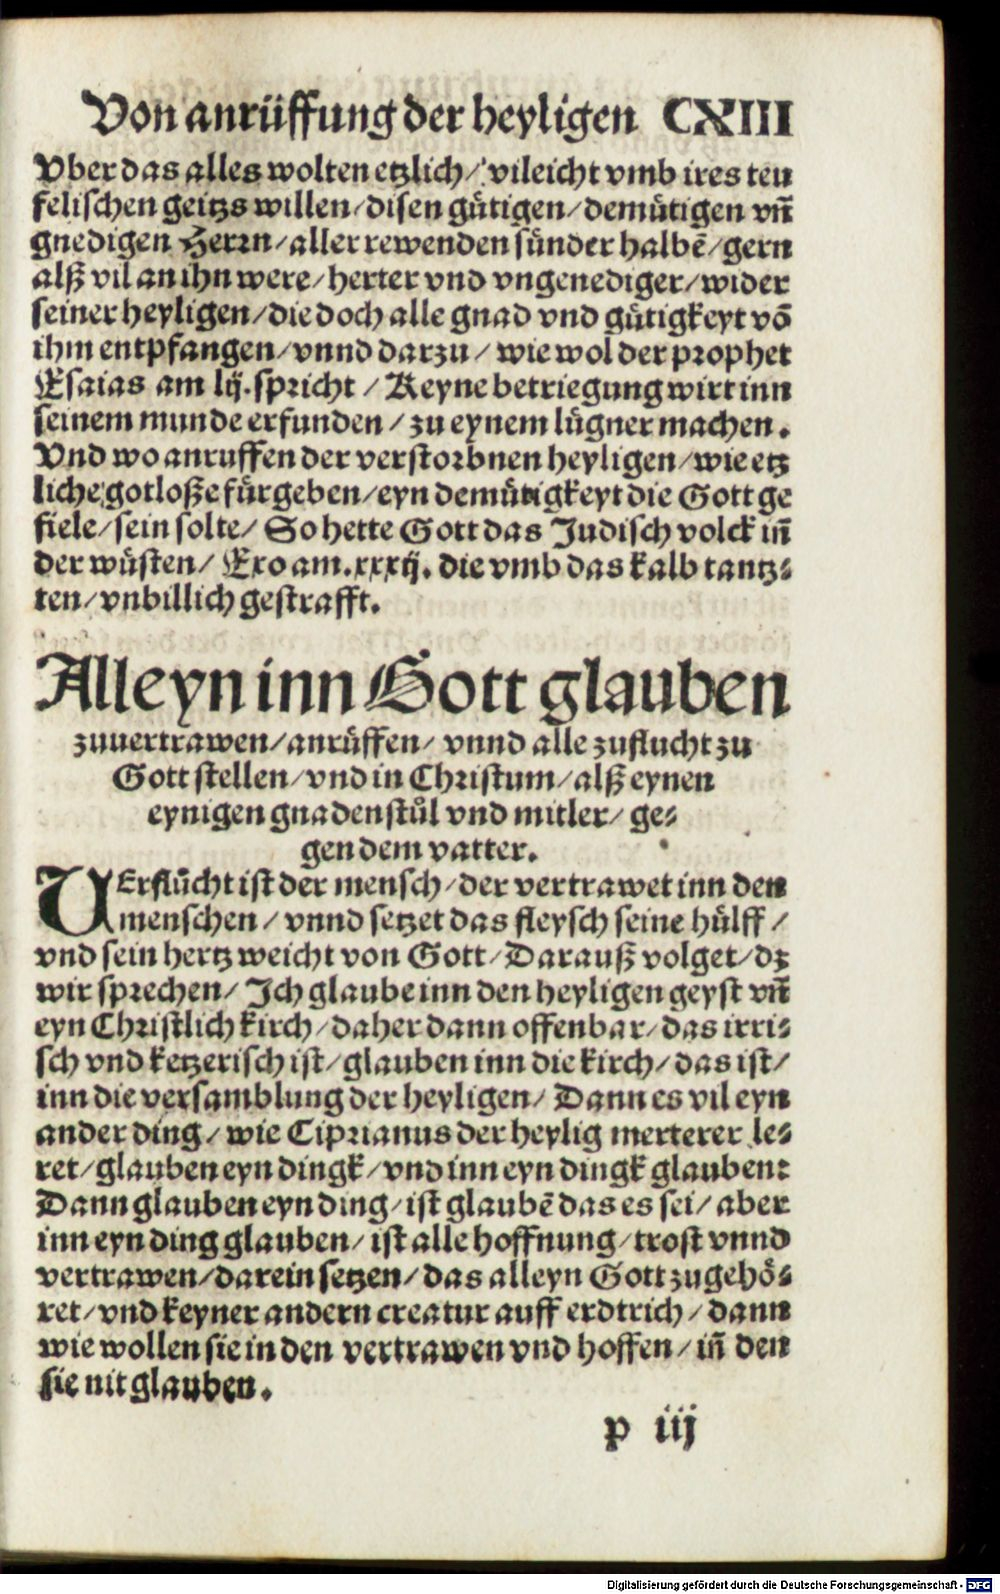 Von anrüffung der heyligen CXIII
Vber das alles wolten etzlich / vileicht vmb ires teu
felischen geitzs willen / disen gütigen / demütigen vn̄
gnedigen Herrn / aller rewenden sünder halbē / gern
alß vil an ihn were / herter vnd vngenediger / wider
seiner heyligen / die doch alle gnad vnd gütigkeyt vō
ihm entpfangen / vnnd darzu / wie wol der prophet
Esaias am lij. spricht / Keyne betriegung wirt inn
seinem munde erfunden / zu eynem lügner machen.
Vnd wo anruffen der verstorbnen heyligen / wie etz
liche gotloße fürgeben / eyn demütigkeyt die Gott ge
fiele / sein solte / So hette Gott das Judisch volck in̄
der wüsten / Exo am. xxxij. die vmb das kalb tantz⸗
ten / vnbillich gestrafft.
Alleyn inn Gott glauben
zuuertrawen / anrüffen / vnnd alle zuflucht zu
Gott stellen / vnd in Christum / alß eynen
eynigen gnadenstůl vnd mitler / ge⸗
gen dem vatter.
VErflůcht ist der mensch / der vertrawet inn den
menschen / vnnd setzet das fleysch seine hülff /
vnd sein hertz weicht von Gott / Darauß volget / dz
wir sprechen / Ich glaube inn den heyligen geyst vn̄
eyn Christlich kirch / daher dann offenbar / das irri⸗
sch vnd ketzerisch ist / glauben inn die kirch / das ist /
inn die versamblung der heyligen / Dann es vil eyn
ander ding / wie Ciprianus der heylig merterer le⸗
ret / glauben eyn dingk / vnd inn eyn dingk glauben:
Dann glauben eyn ding / ist glaubē das es sei / aber
inn eyn ding glauben / ist alle hoffnung / trost vnnd
vertrawen / darein setzen / das alleyn Gott zugehö⸗
ret / vnd keyner andern creatur auff erdtrich / dann
wie wollen sie in den vertrawen vnd hoffen / in̄ den
sie nit glauben.
p iij
Digitalisierung gefördert durch die Deutsche Forschungsgemeinschaft - DFG